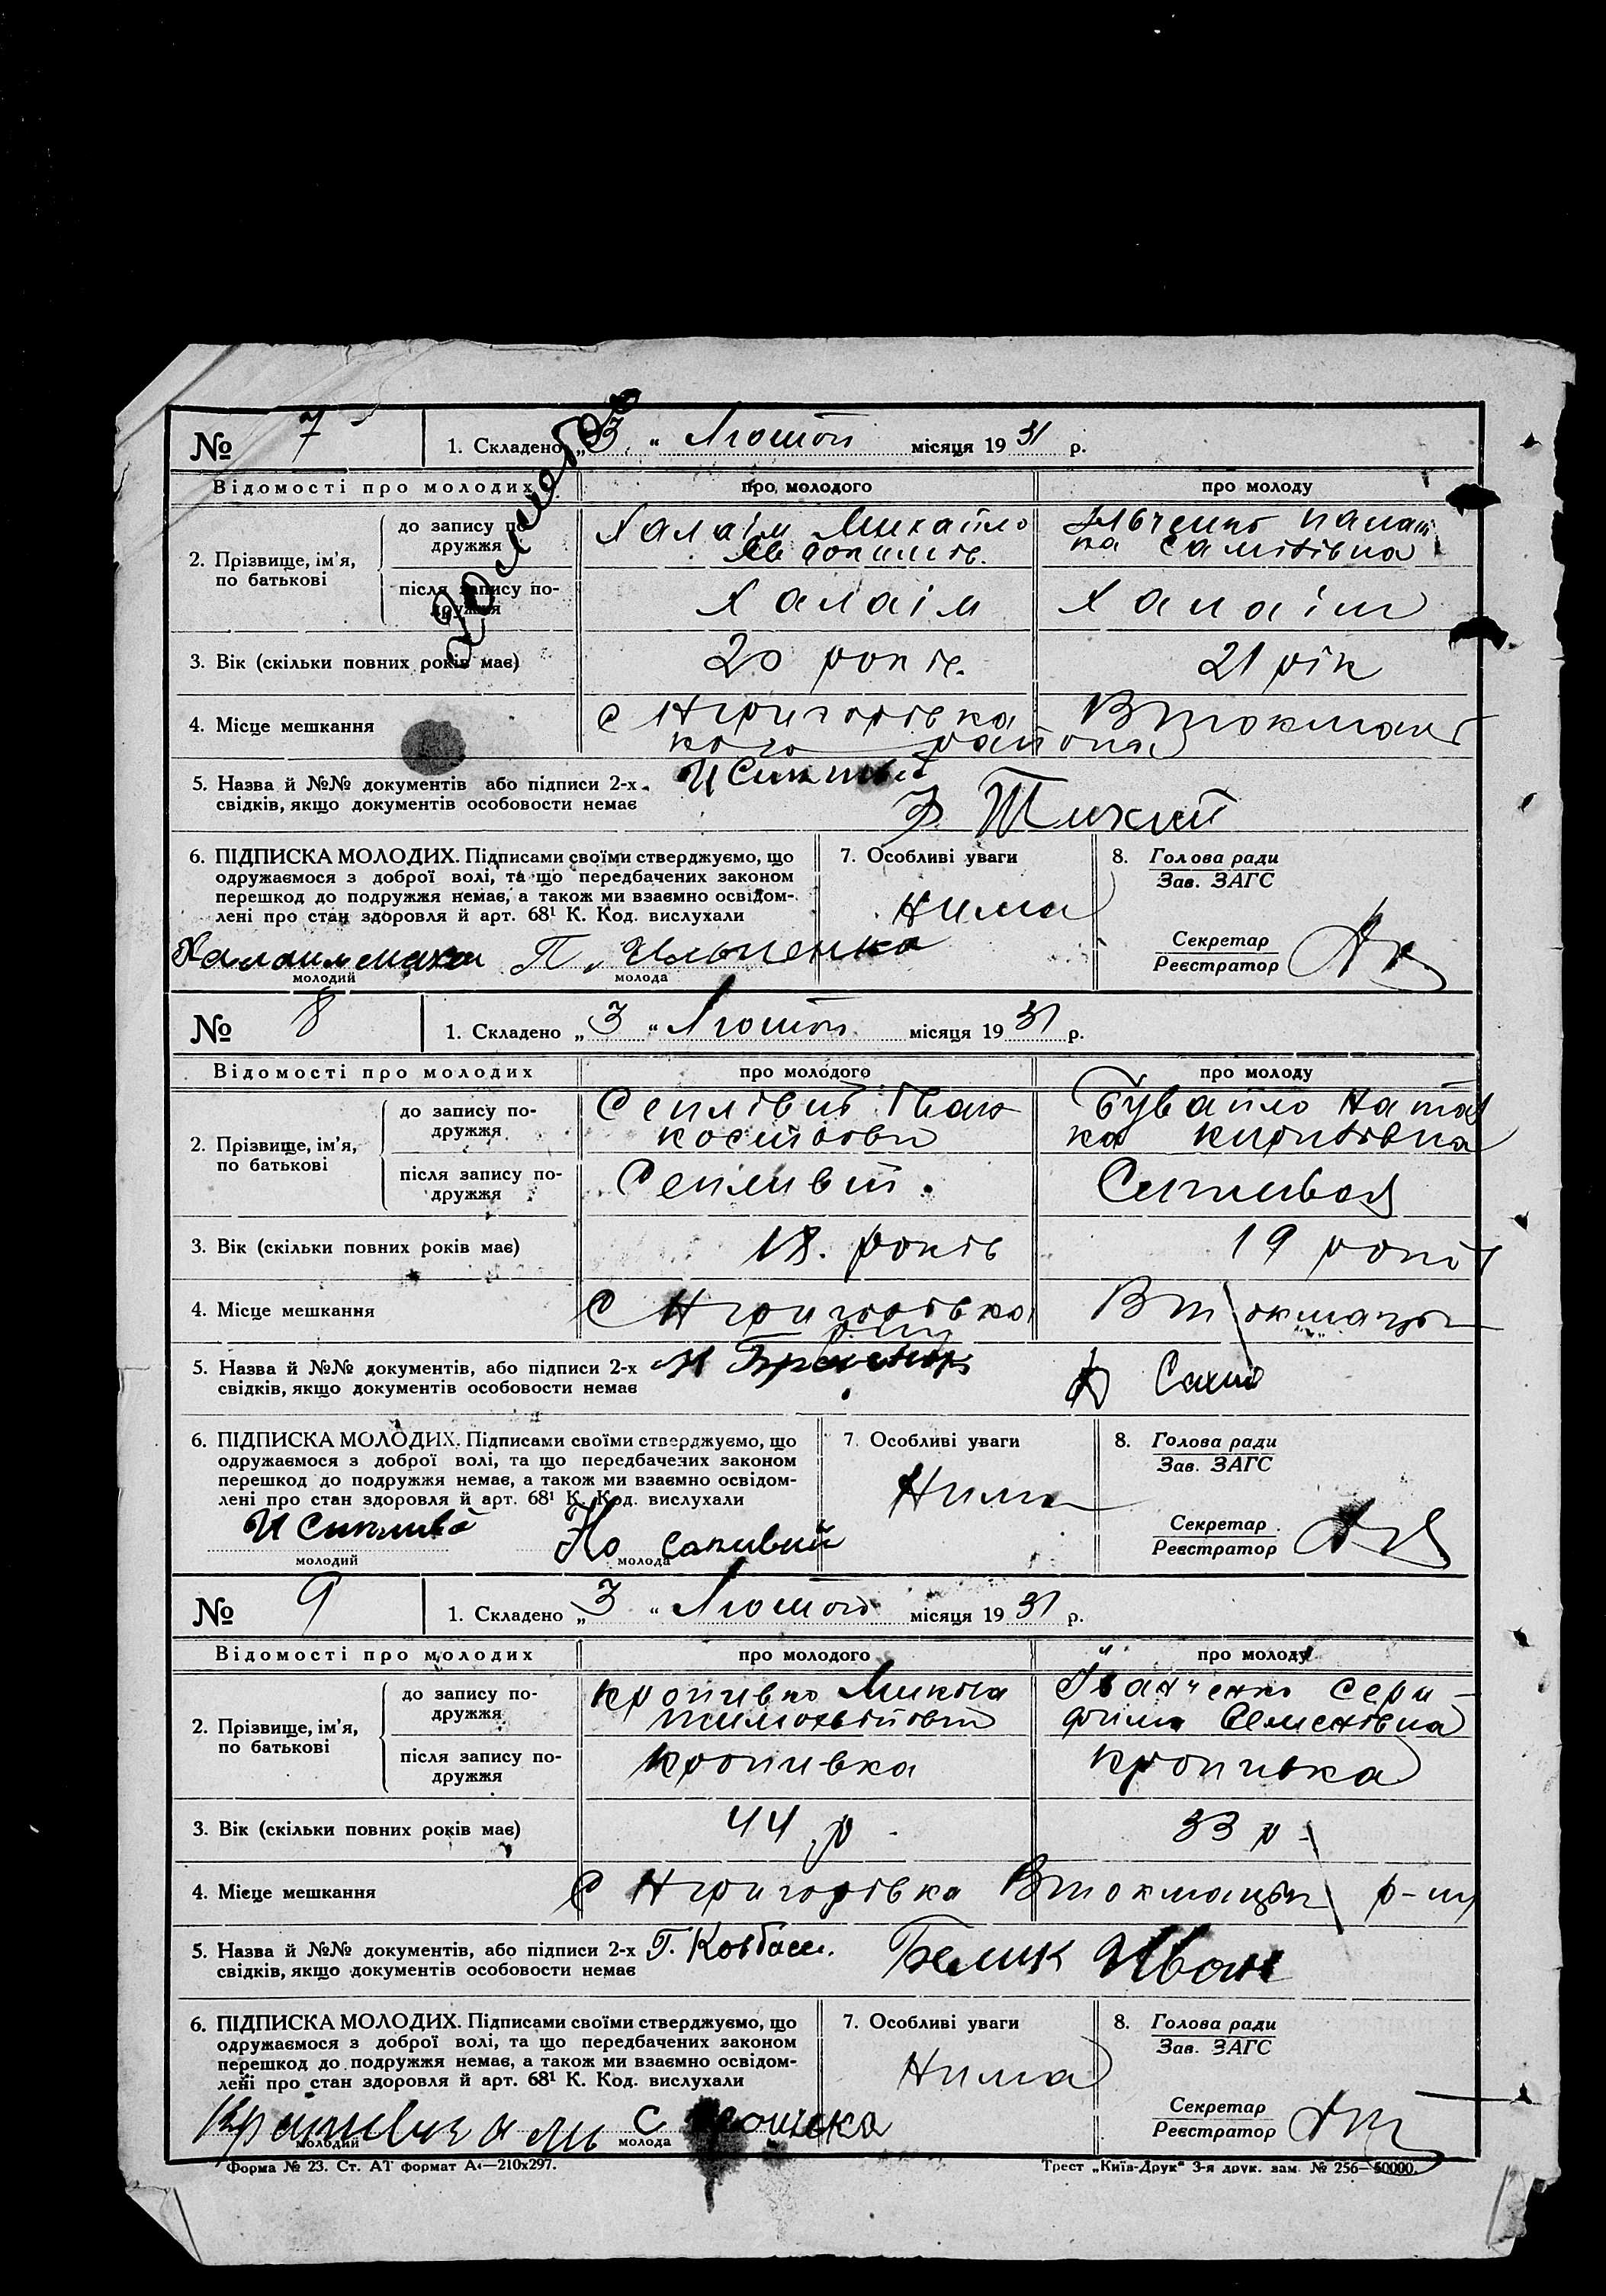 № 7 1. Складено „3“ Лютого місяця 1931 р.
Відомості про молодих про молодого про молоду
2. Прізвище, ім'я, по батькові
до запису по-
дружжя
Халаім Михайло
Самійлівна
після запису по-
дружжя
Халаім Халаім
3. Вік (скільки повних років має) 20 років. 21 рік
4. Місце мешкання с Нгригорівка Втокмац
кого района
5. Назва й №№ документів або підписи 2-х
свідків, якщо документів особовости немає
Тихий
6. ПІДПИСКА МОЛОДИХ. Підписами своїми стверджуємо, що
одружаємося з доброї волі, та що передбачених законом
перешкод до подружжя немає, а також ми взаємно освідом-
лені про стан здоровля й арт. 68¹ К. Код. вислухали
7. Особливі уваги
Нима
8. Голова ради
Зав. ЗАГС
Секретар
Реєстратор
П. Ильченка
молодий молода
№ 8 1. Складено „3“ Лютого місяця 1931 р.
Відомості про молодих про молодого про молоду
2. Прізвище, ім'я, по батькові
до запису по-
дружжя
Сепливий Іван Бувайло Натал
ка
після запису по-
дружжя
Сепливий.
3. Вік (скільки повних років має) 18. років 19 років
4. Місце мешкання С Нгригорівка Втокмацьк
р-ну
5. Назва й №№ документів, або підписи 2-х
свідків, якщо документів особовости немає
Сахно
6. ПІДПИСКА МОЛОДИХ. Підписами своїми стверджуємо, що
одружаємося з доброї волі, та що передбачених законом
перешкод до подружжя немає, а також ми взаємно освідом-
лені про стан здоровля й арт. 68¹ К. Код. вислухали
7. Особливі уваги
Нима
8. Голова ради
Зав. ЗАГС
Секретар
Реєстратор
И
молодий молода
№ 9 1. Складено „3“ Лютого місяця 1931 р.
Відомості про молодих про молодого про молоду
2. Прізвище, ім'я, по батькові
до запису по-
дружжя
Кропивко Микола Іванченко Сера-
фима Семенівна
після запису по-
дружжя
Кропивка Кропивка
3. Вік (скільки повних років має) 44 р. 33 р.
4. Місце мешкання С Нгригорівка Втокмацьк р-ну
5. Назва й №№ документів, або підписи 2-х
свідків, якщо документів особовости немає
Г. Ковбаса. Белик Иван
6. ПІДПИСКА МОЛОДИХ. Підписами своїми стверджуємо, що
одружаємося з доброї волі, та що передбачених законом
перешкод до подружжя немає, а також ми взаємно освідом-
лені про стан здоровля й арт. 68¹ К. Код. вислухали
7. Особливі уваги
Нима
8. Голова ради
Зав. ЗАГС
Секретар
Реєстратор
молодий молода
Форма № 23. Ст. АТ формат А4—210х297. Трест „Київ-Друк“ 3-я друк. зам. № 256—50000.